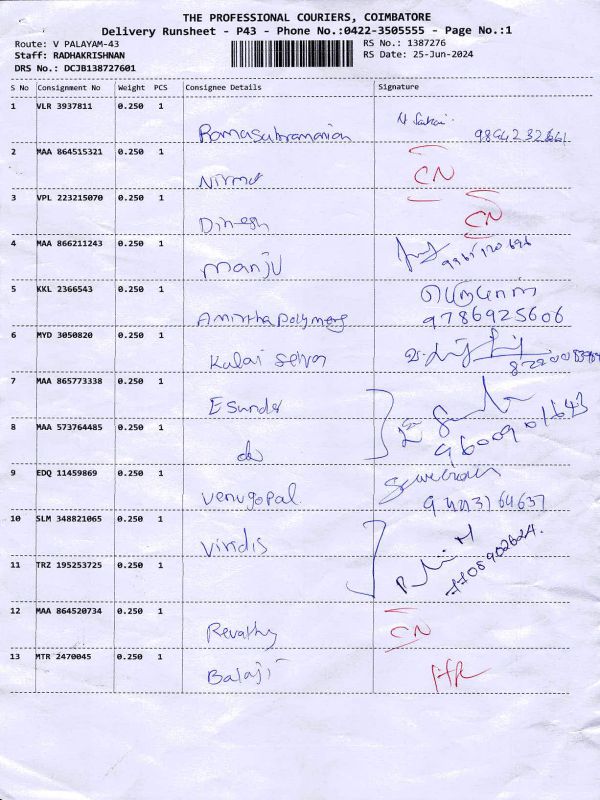 THE PROFESSIONAL COURIERS, COIMBATORE
Delivery Runsheet - P43 - Phone No.:0422-3505555 - Page No.:1
Route: V PALAYAM-43 RS No.: 1387276
Staff: RADHAKRISHNAN RS Date: 25-Jun-2024
DRS No.: DCJB138727601
S No Consignment No Weight PCS Consignee Details Signature
1 VLR 3937811 0.250 1
Ramasubramanian
2 MAA 864515321 0.250 1
Nirmal CN
3 VPL 223215070 0.250 1
Dinesh CN
4 MAA 866211243 0.250 1
manju
5 KKL 2366543 0.250 1
Amirtha polymers 9786925606
6 MYD 3050820 0.250 1
Kalai selvan
7 MAA 865773338 0.250 1
Esunder
8 MAA 573764485 0.250 1
do 9600901643
9 EDQ 11459869 0.250 1
venugopal
10 SLM 348821065 0.250 1
Viridis
11 TRZ 195253725 0.250 1
12 MAA 864520734 0.250 1
Revathy CN
13 MTR 2470045 0.250 1
Balaji